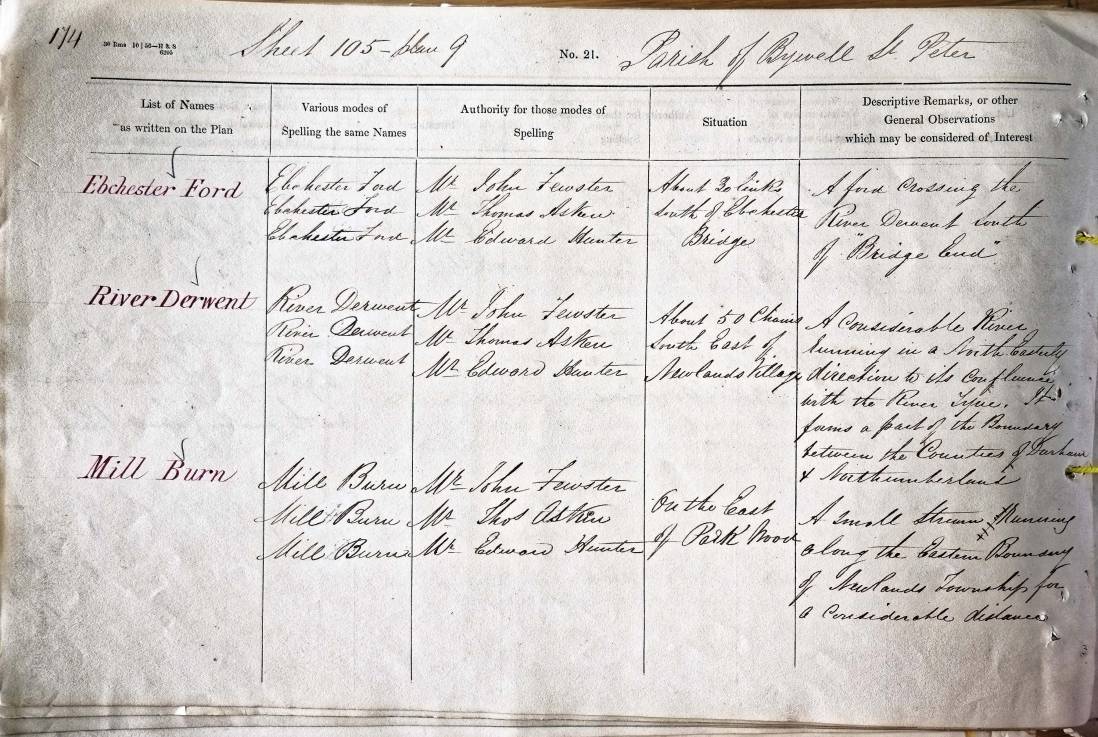 174
30 Rms 10 | 56—H & S
6205
Sheet 105 - Plan 9
No. 21.
Parish of Bywell St. Peter
List of Names
as written on the Plan
Various modes of
Spelling the same Names
Authority for those modes of
Spelling
Situation
Descriptive Remarks, or other
General Observations
which may be considered of Interest
Ebchester Ford
Ebchester Ford
Ebchester Ford
Ebchester Ford
Mr. John Fewster
Mr. Thomas Askew
Mr. Edward Hunter
About 30 links
South of Ebchester
Bridge
A ford crossing the
River Derwent South
of "Bridge End"
River Derwent
River Derwent
River Derwent
River Derwent
Mr. John Fewster
Mr. Thomas Askew
Mr. Edward Hunter
About 50 Chains
South East of
Newlands Village
A Considerable River
Running in a North Easterly
direction to its confluence
with the River Tyne. It
forms a part of the Boundary
between the Counties of Durham
& Northumberland
Mill Burn
Mill Burn
Mill Burn
Mill Burn
Mr. John Fewster
Mr. Thos Askew
Mr. Edward Hunter
On the East
of Park Wood
A Small Stream Running
along the Eastern Boundary
of Newlands Township for
a Considerable distance